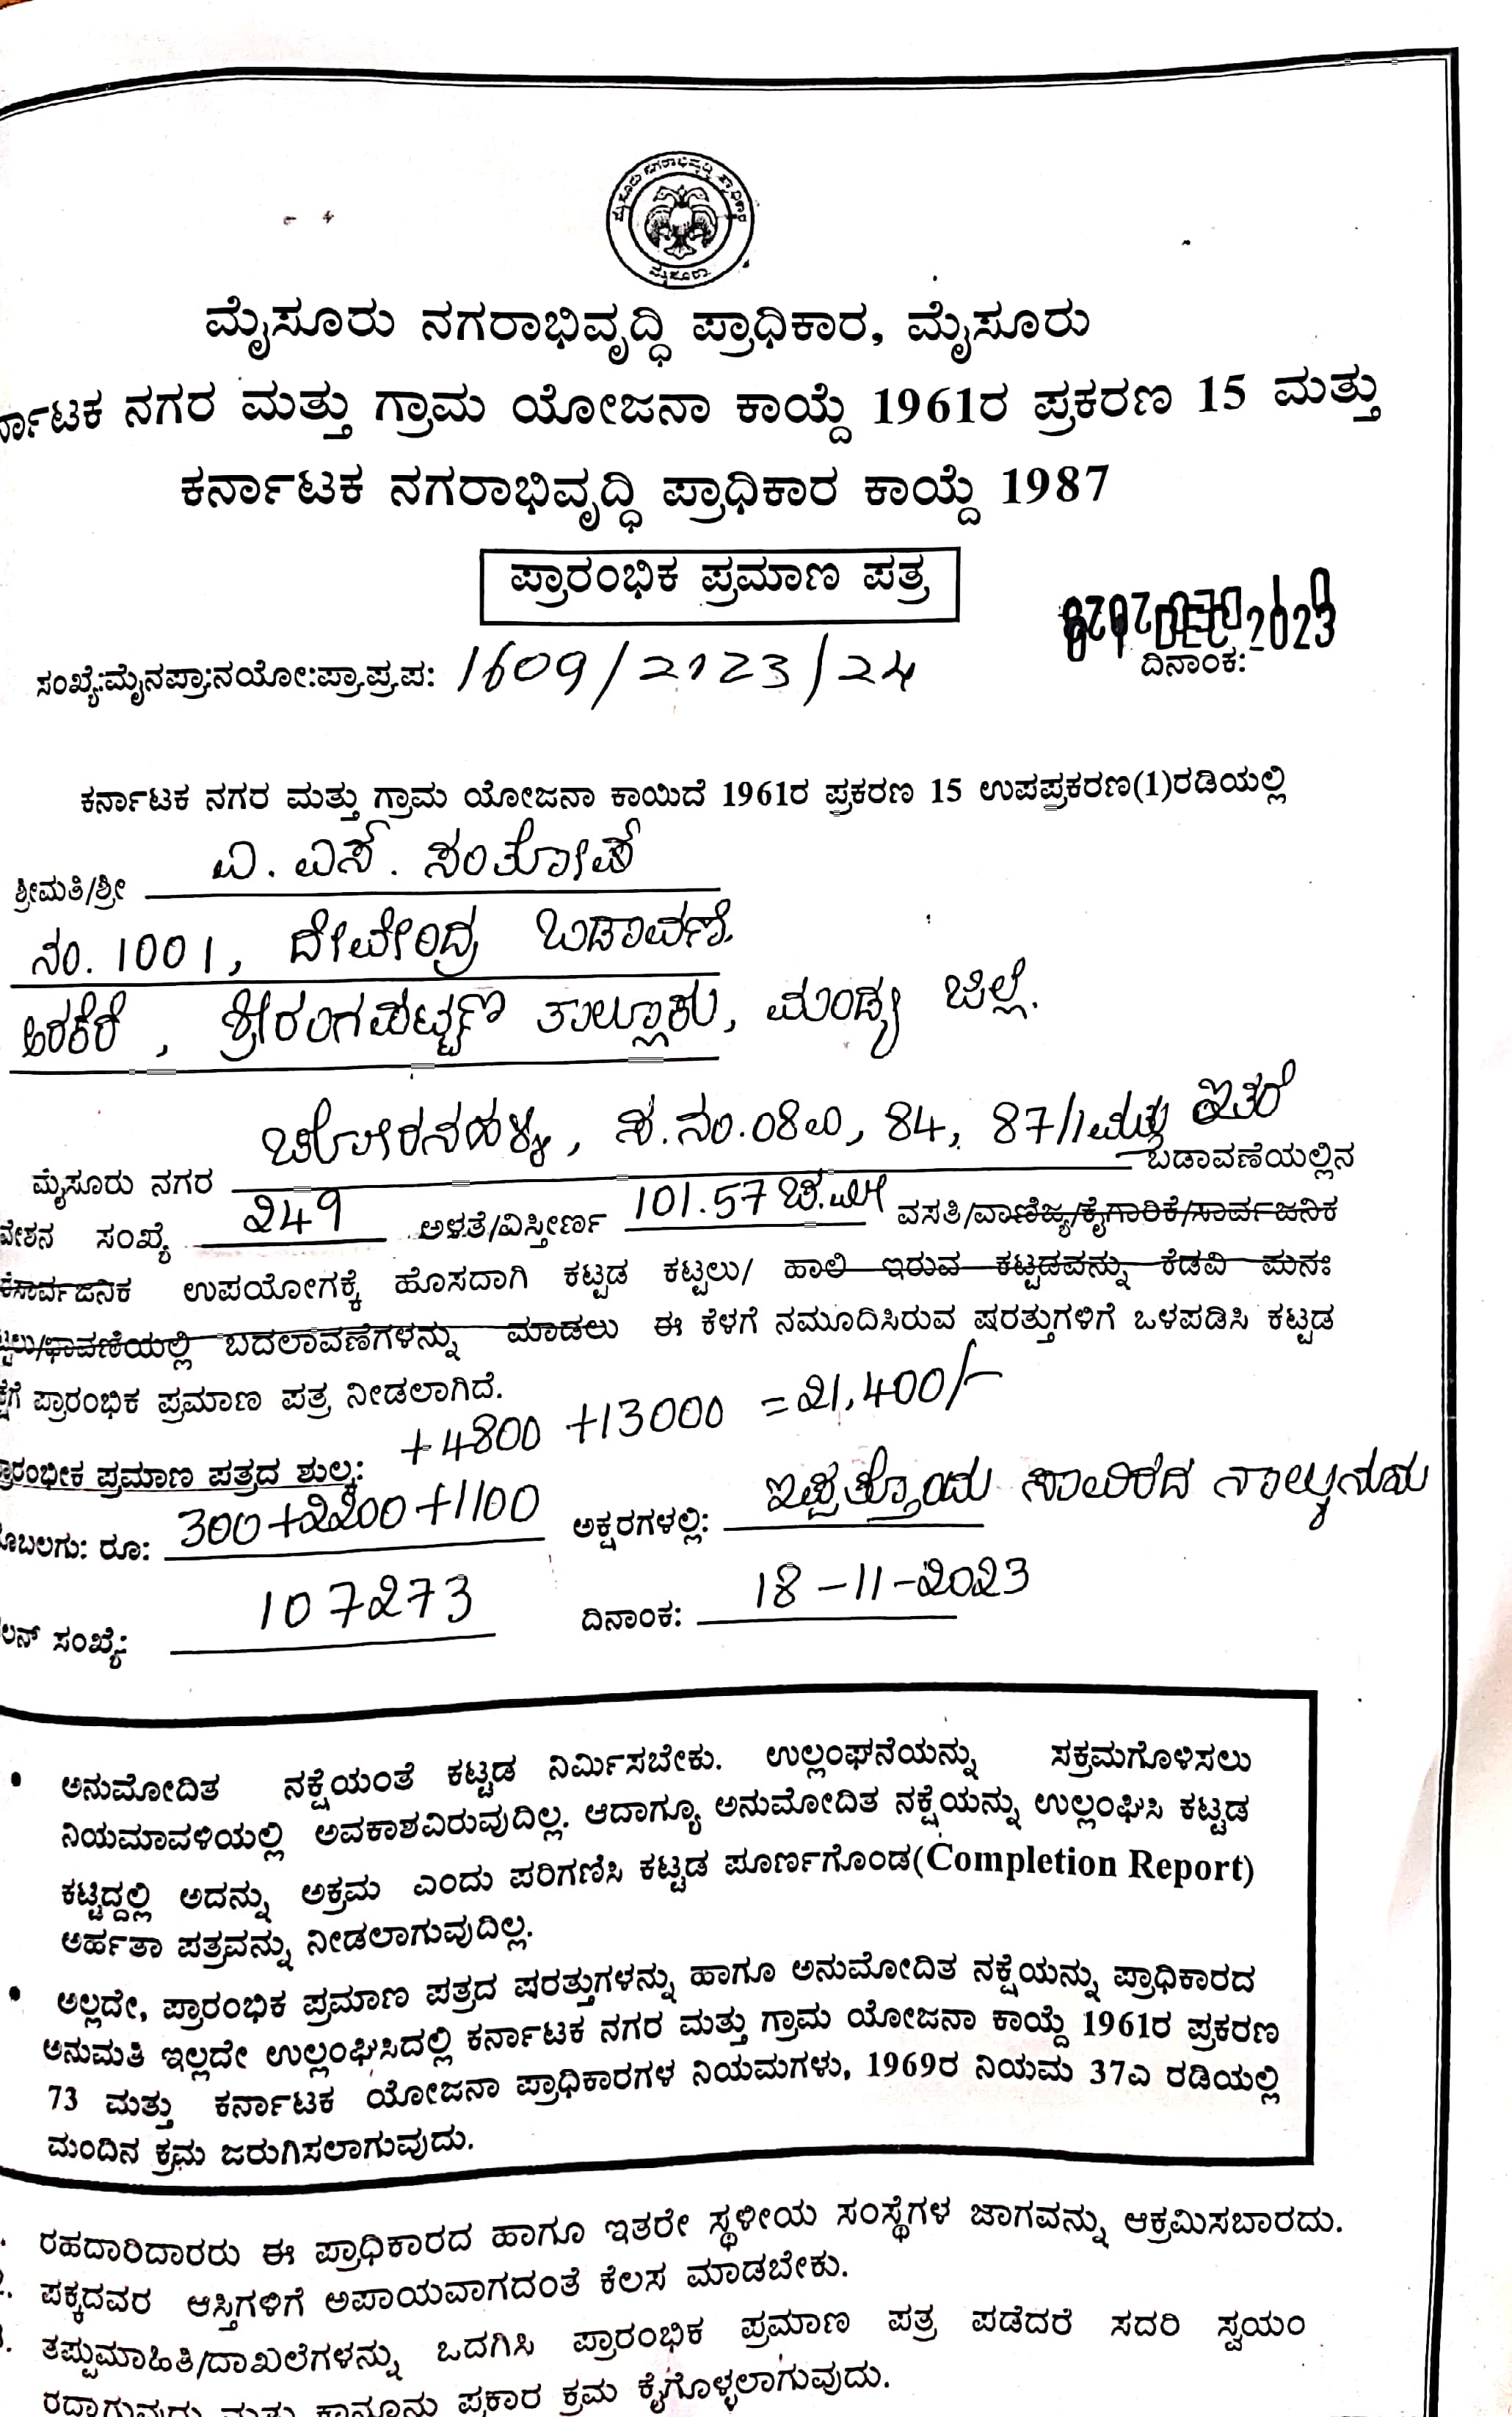 ಮೈಸೂರು ನಗರಾಭಿವೃದ್ಧಿ ಪ್ರಾಧಿಕಾರ
ಮೈಸೂರು
ಮೈಸೂರು ನಗರಾಭಿವೃದ್ಧಿ ಪ್ರಾಧಿಕಾರ, ಮೈಸೂರು
ರ್ನಾಟಕ ನಗರ ಮತ್ತು ಗ್ರಾಮ ಯೋಜನಾ ಕಾಯ್ದೆ 1961ರ ಪ್ರಕರಣ 15 ಮತ್ತು
ಕರ್ನಾಟಕ ನಗರಾಭಿವೃದ್ಧಿ ಪ್ರಾಧಿಕಾರ ಕಾಯ್ದೆ 1987
ಪ್ರಾರಂಭಿಕ ಪ್ರಮಾಣ ಪತ್ರ
DEC 2023
ಸಂಖ್ಯೆ:ಮೈನಪ್ರಾ:ನಯೋ:ಪ್ರಾ.ಪ್ರ.ಪ: 1609/2123/24 ದಿನಾಂಕ:
ಕರ್ನಾಟಕ ನಗರ ಮತ್ತು ಗ್ರಾಮ ಯೋಜನಾ ಕಾಯಿದೆ 1961ರ ಪ್ರಕರಣ 15 ಉಪಪ್ರಕರಣ(1)ರಡಿಯಲ್ಲಿ
ಶ್ರೀಮತಿ/ಶ್ರೀ ಎ. ಎಸ್. ಸಂತೋಷ್
ನಂ. 1001, ದೇವೇಂದ್ರ ಬಡಾವಣೆ.
ಅರಕೆರೆ, ಶ್ರೀರಂಗಪಟ್ಟಣ ತಾಲ್ಲೂಕು, ಮಂಡ್ಯ ಜಿಲ್ಲೆ.
84, 87/1ಮತ್ತು ಇತರೆ
ಮೈಸೂರು ನಗರ ಬಡಾವಣೆಯಲ್ಲಿನ
ವೇಶನ ಸಂಖ್ಯೆ 249 ಅಳತೆ/ವಿಸ್ತೀರ್ಣ 101.57 ಚ.ಮೀ ವಸತಿ/ವಾಣಿಜ್ಯ/ಕೈಗಾರಿಕೆ/ಸಾರ್ವಜನಿಕ
ಉಪಯೋಗಕ್ಕೆ ಹೊಸದಾಗಿ ಕಟ್ಟಡ ಕಟ್ಟಲು/ ಹಾಲಿ ಇರುವ ಕಟ್ಟಡವನ್ನು ಕೆಡವಿ ಪುನಃ
ಬದಲಾವಣೆಗಳನ್ನು ಮಾಡಲು ಈ ಕೆಳಗೆ ನಮೂದಿಸಿರುವ ಷರತ್ತುಗಳಿಗೆ ಒಳಪಡಿಸಿ ಕಟ್ಟಡ
ಪ್ರಾರಂಭಿಕ ಪ್ರಮಾಣ ಪತ್ರ ನೀಡಲಾಗಿದೆ.
ಪ್ರಾರಂಭೀಕ ಪ್ರಮಾಣ ಪತ್ರದ ಶುಲ್ಕ: +4800 +13000 =21,400/-
ಬಲಗು: ರೂ: 300+2200+1100 ಅಕ್ಷರಗಳಲ್ಲಿ: ಇಪ್ಪತ್ತೊಂದು ಸಾವಿರದ ನಾಲ್ಕುನೂರು
ಲನ್ ಸಂಖ್ಯೆ: 107273 ದಿನಾಂಕ: 18-11-2023
• ಅನುಮೋದಿತ ನಕ್ಷೆಯಂತೆ ಕಟ್ಟಡ ನಿರ್ಮಿಸಬೇಕು. ಉಲ್ಲಂಘನೆಯನ್ನು ಸಕ್ರಮಗೊಳಿಸಲು
ನಿಯಮಾವಳಿಯಲ್ಲಿ ಅವಕಾಶವಿರುವುದಿಲ್ಲ. ಆದಾಗ್ಯೂ ಅನುಮೋದಿತ ನಕ್ಷೆಯನ್ನು ಉಲ್ಲಂಘಿಸಿ ಕಟ್ಟಡ
ಕಟ್ಟಿದ್ದಲ್ಲಿ ಅದನ್ನು ಅಕ್ರಮ ಎಂದು ಪರಿಗಣಿಸಿ ಕಟ್ಟಡ ಪೂರ್ಣಗೊಂಡ(Completion Report)
ಅರ್ಹತಾ ಪತ್ರವನ್ನು ನೀಡಲಾಗುವುದಿಲ್ಲ.
• ಅಲ್ಲದೇ, ಪ್ರಾರಂಭಿಕ ಪ್ರಮಾಣ ಪತ್ರದ ಷರತ್ತುಗಳನ್ನು ಹಾಗೂ ಅನುಮೋದಿತ ನಕ್ಷೆಯನ್ನು ಪ್ರಾಧಿಕಾರದ
ಅನುಮತಿ ಇಲ್ಲದೇ ಉಲ್ಲಂಘಿಸಿದಲ್ಲಿ ಕರ್ನಾಟಕ ನಗರ ಮತ್ತು ಗ್ರಾಮ ಯೋಜನಾ ಕಾಯ್ದೆ 1961ರ ಪ್ರಕರಣ
73 ಮತ್ತು ಕರ್ನಾಟಕ ಯೋಜನಾ ಪ್ರಾಧಿಕಾರಗಳ ನಿಯಮಗಳು, 1969ರ ನಿಯಮ 37ಎ ರಡಿಯಲ್ಲಿ
ಮಂದಿನ ಕ್ರಮ ಜರುಗಿಸಲಾಗುವುದು.
ರಹದಾರಿದಾರರು ಈ ಪ್ರಾಧಿಕಾರದ ಹಾಗೂ ಇತರೇ ಸ್ಥಳೀಯ ಸಂಸ್ಥೆಗಳ ಜಾಗವನ್ನು ಆಕ್ರಮಿಸಬಾರದು.
ಪಕ್ಕದವರ ಆಸ್ತಿಗಳಿಗೆ ಅಪಾಯವಾಗದಂತೆ ಕೆಲಸ ಮಾಡಬೇಕು.
ತಪ್ಪುಮಾಹಿತಿ/ದಾಖಲೆಗಳನ್ನು ಒದಗಿಸಿ ಪ್ರಾರಂಭಿಕ ಪ್ರಮಾಣ ಪತ್ರ ಪಡೆದರೆ ಸದರಿ ಸ್ವಯಂ
ರದ್ದಾಗುವುದು ಮತ್ತು ಕಾನೂನು ಪ್ರಕಾರ ಕ್ರಮ ಕೈಗೊಳ್ಳಲಾಗುವುದು.